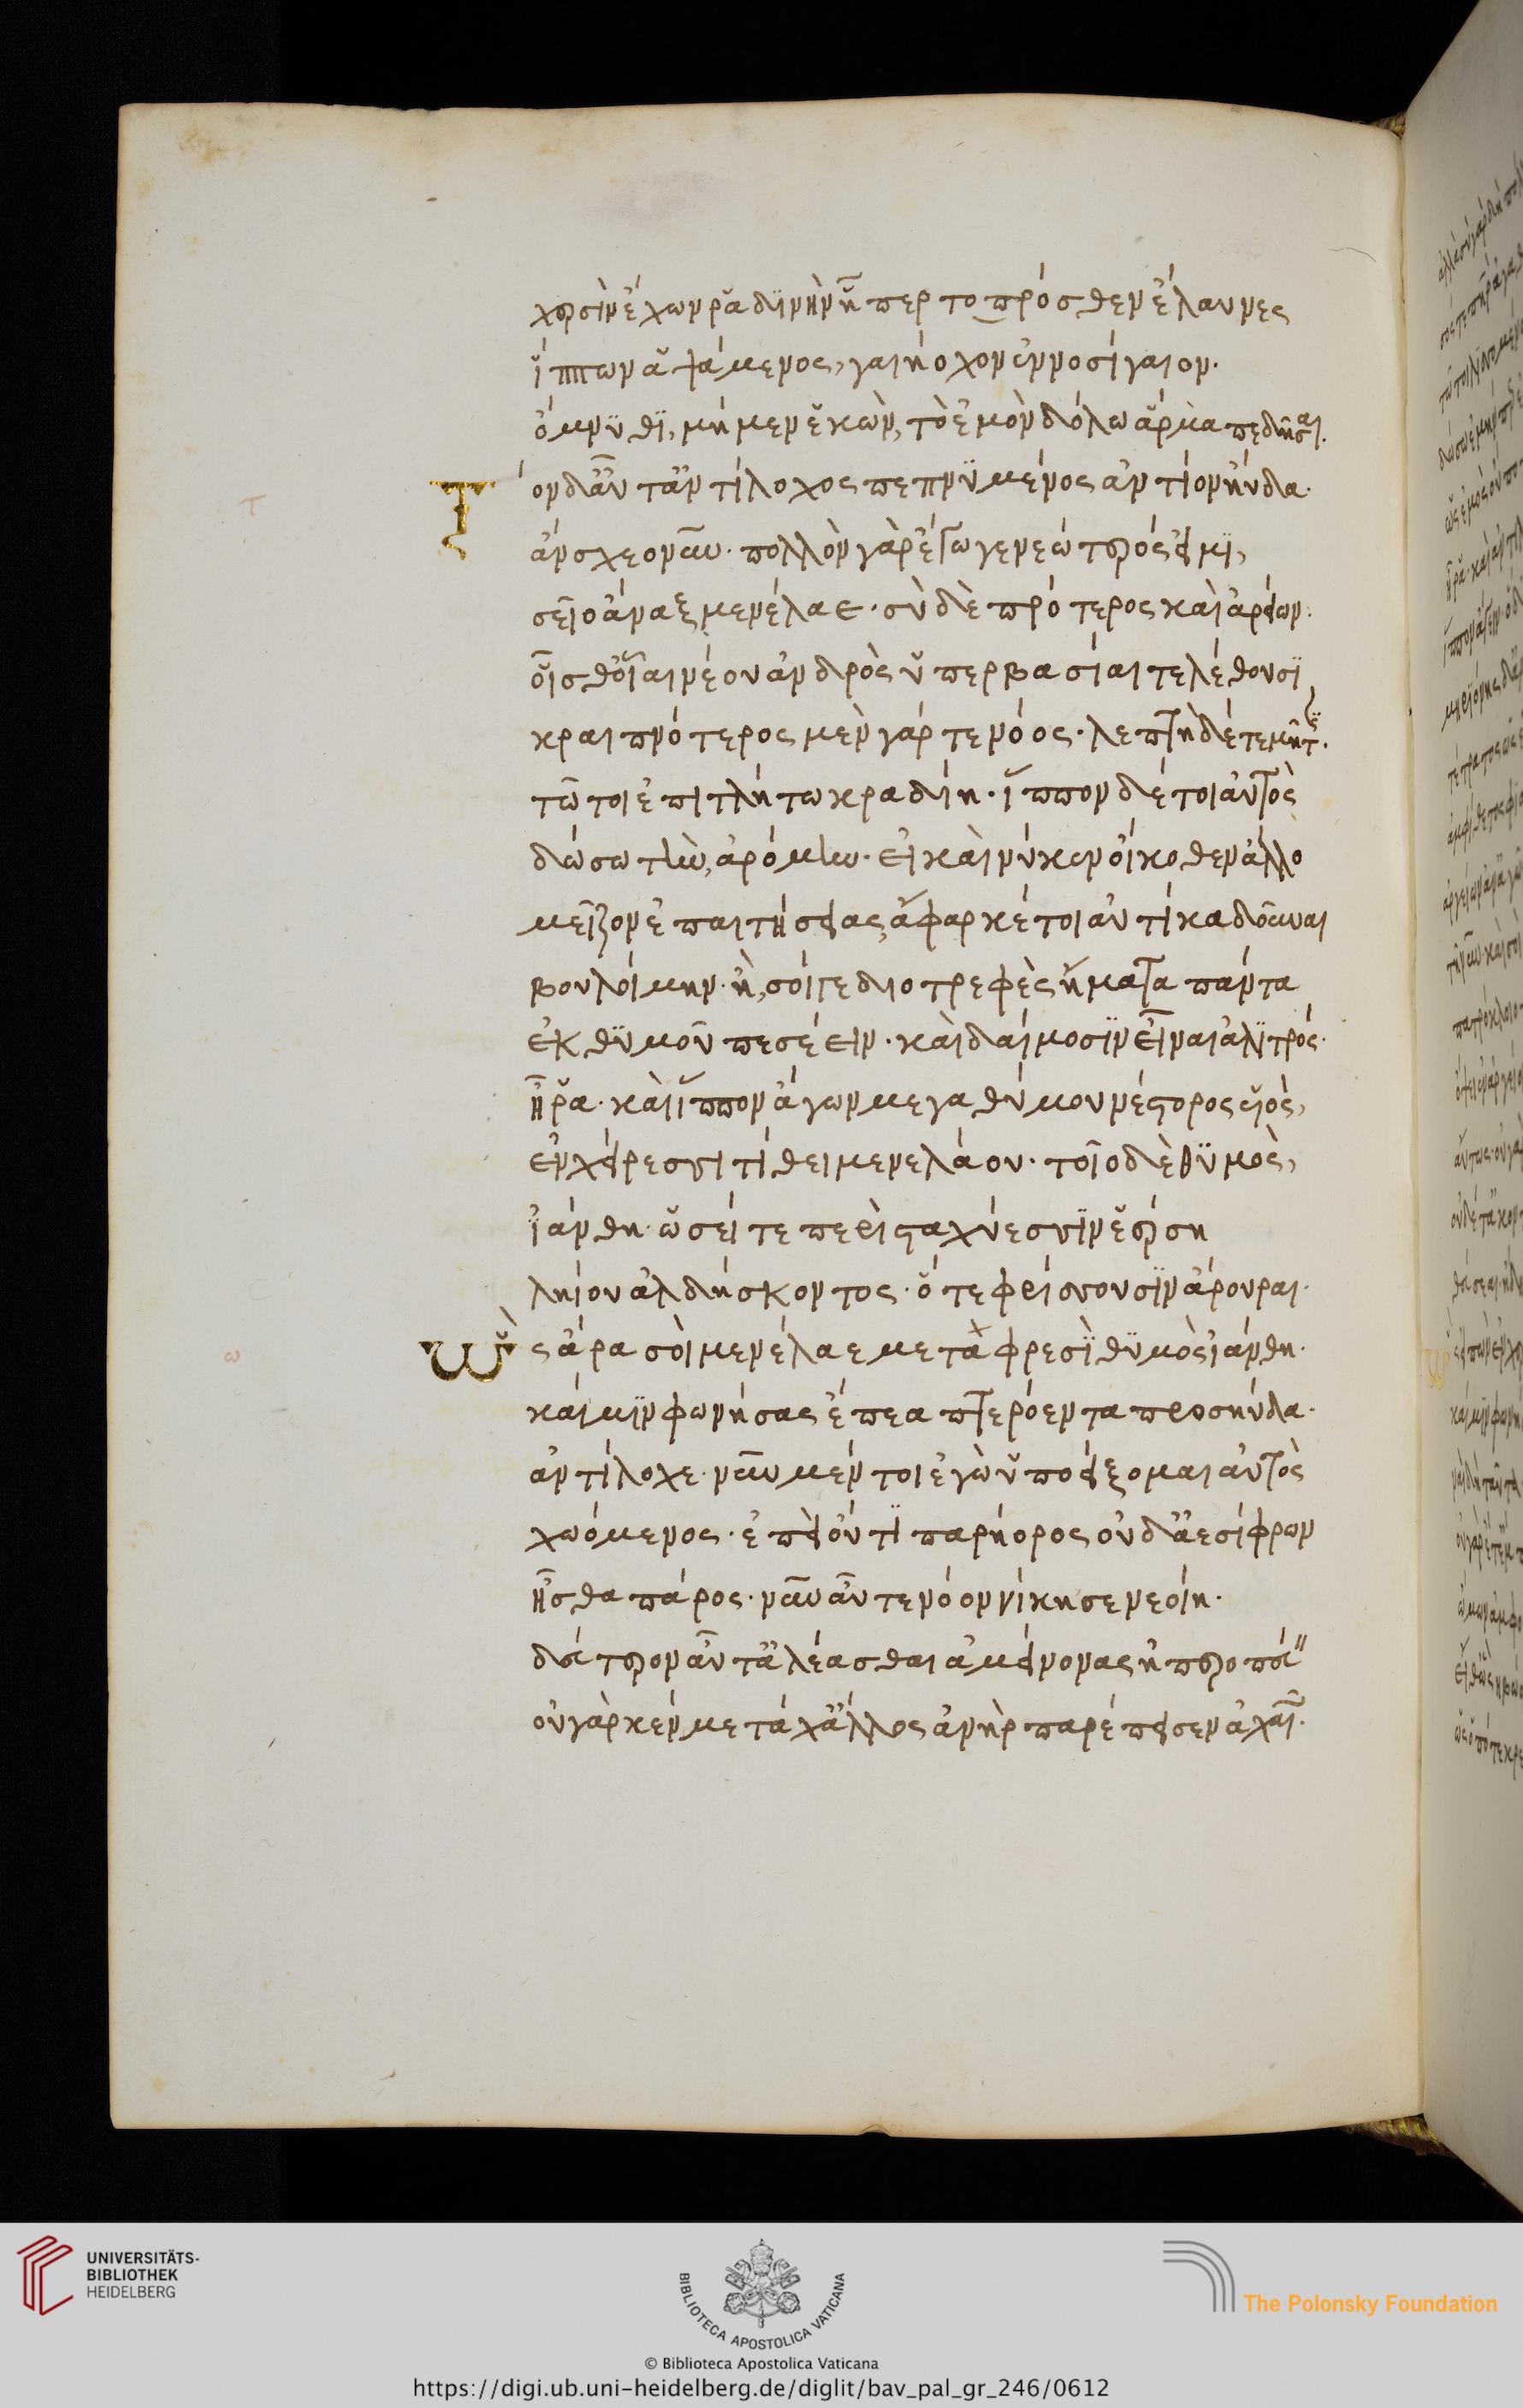 χερσὶν ἔχων ῥαδινὴν ᾗ περ τοπρόσθεν ἔλαυνες
ἵππων ἁψάμενος, γαιήοχον ἐννοσίγαιον·
ὄμνϋθϊ, μὴ μὲν ἑκὼν, τὸ ἐμὸν δόλω ἅρμα πεδῆσαι.
Τὸν δ' αὖτ' ἀντίλοχος πεπνϋμένος ἀντίον ηὔδα·
ἄνσχεο νῦν· πολλὸν γὰρ ἔγωγε νεώτερός εἰμϊ,
σεῖο ἄναξ μενέλαε· σὺ δὲ πρότερος καὶ ἀρείων·
οἶσθ' οἷαι νέου ἀνδρὸς ὑπερβασίαι τελέθουσϊ
κραιπνότερος μὲν γάρ τε νόος· λεπτὴ δέ τε μῆτϊς·
τῶ τοι ἐπιτλήτω κραδίη· ἵππον δέ τοι αὐτὸς
δώσω τὴν, ἀρόμην· εἰ καί νύ κεν οἴκοθεν ἄλλο
μεῖζον ἐπαιτήσειας, ἄφαρ κέ τοι αὐτίκα δοῦναι
βουλοίμην· ἢ, σοί γε διοτρεφὲς ἤματα πάντα
ἐκ θϋμοῦ πεσέειν· καὶ δαίμοσϊν εἶναι ἀλϊτρός·
ἦ ῥα· καὶ ἵππον ἄγων μεγαθύμου νέστορος υἱὸς,
ἐν χείρεσσι τίθει μενελάου· τοῖο δὲ θϋμὸς,
ἰάνθη· ὡσεί τε περὶ σταχύεσσϊν ἐέρση
ληίου ἀλδήσκοντος· ὅτε φρίσσουσϊν ἄρουραι·
Ὣς ἄρα σοὶ μενέλαε μετὰ φρεσὶ θϋμὸς ἰάνθη·
καί μϊν φωνήσας ἔπεα πτερόεντα προσηύδα·
ἀντίλοχε· νῦν μέν τοι ἐγὼν ὑποείξομαι αὐτὸς
χωόμενος· ἐπεὶ οὔτϊ παρήορος οὐδ' ἀεσίφρων
ἦσθα πάρος· νῦν αὖτε νόον νίκησε νεοίη·
δεύτερον αὖτ' ἀλέασθαι ἀμείνονας ἠπεροπεύ"
οὐ γάρ κέν με τάχ' ἄλλος ἀνὴρ παρέπεισεν ἀχαιῶν·
UNIVERSITÄTS-
BIBLIOTHEK
HEIDELBERG
BIBLIOTECA APOSTOLICA VATICANA
The Polonsky Foundation
© Biblioteca Apostolica Vaticana
https://digi.ub.uni-heidelberg.de/diglit/bav_pal_gr_246/0612